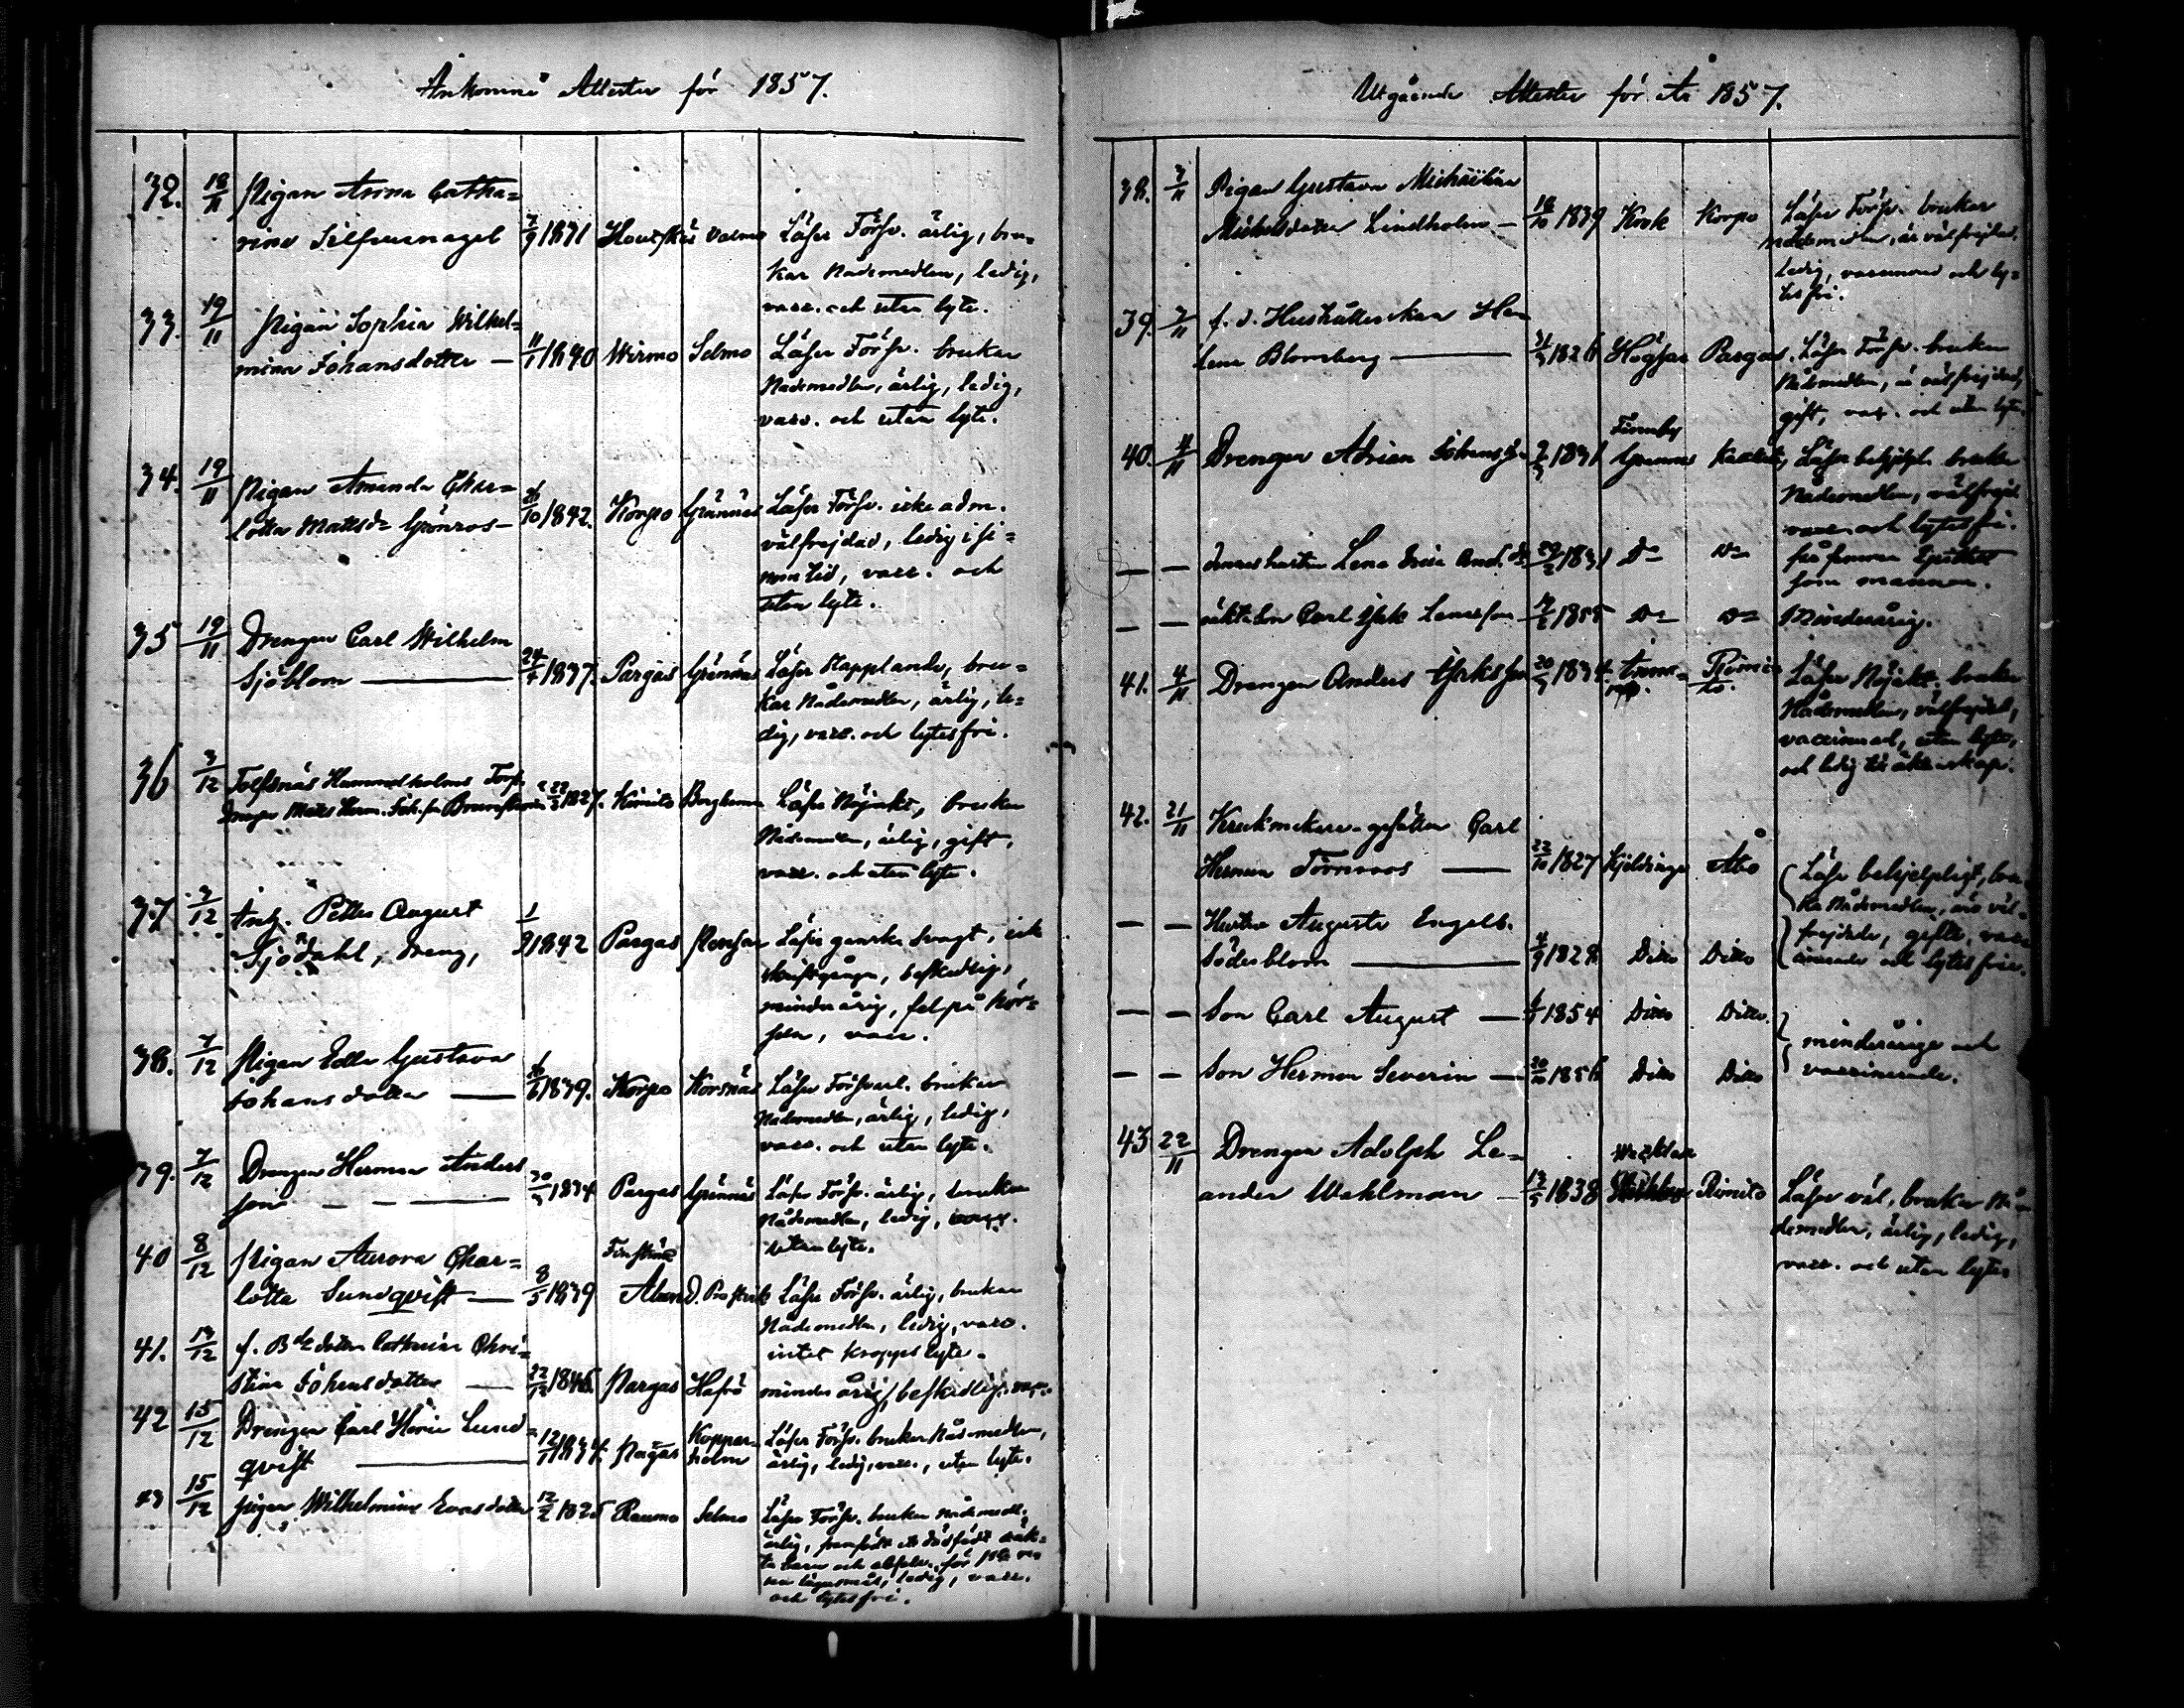 Ankomne Attester för 1857.
32. 18/11 Pigan Anna Catha=
rina Silfvernagel 7/9 1831 Houtskär Valmo Läser Försv. ärlig, bru=
kar Nådemedlen, ledig,
vacc. och utan lyte.
33. 19/11 Pigan Sophia Wilhel=
mina Johansdotter — 11/1 1840 Wirmo Selmo Läser Försv. brukar
Nådemedlen, ärlig, ledig,
vacc. och utan lyte.
34. 19/11 Pigan Amanda Char=
lotta Mattsdr Grönros — 26/10 1842. Korpo Grännäs Läser Försv. icke adm.
välfrejdad, ledig i si=
nom tid, vacc. och
utan lyte.
35 19/11 Drengen Carl Wilhelm
Sjöblom — 24/4 1837. Pargas Grännäs Läser Stapplande, bru=
kar Nådemedlen, ärlig, le=
dig, vacc. och lytesfri.
36 3/12 Torp.
Drengen Matts Herm. 1827. Kimito Läser Nöjakt, brukar
Nådemedlen, ärlig, gift,
vacc. och utan lyte.
37 7/12 Petter August
Sjödahl, dreng, 1/9 1842 Pargas Läser ganska svagt, icke
beskedlig,
minderårig, fel på hör=
seln, vacc.
38. 7/12 Pigan Edla Gustava
Johansdotter — 26/6 1839. Korpo Korsnäs Läser Försvarl. brukar
Nådemedlen, ärlig, ledig,
vacc. och utan lyte.
39. 7/12 Drengen Herman Anders
son — 30/3 1834 Pargas Grännäs Läser Försv. ärlig, brukar
Nådemedlen, ledig, vacc.
utan lyte.
40 8/12 Pigan Aurora Char=
lotta Sundqvist — 8/5 1839 D. Läser Försv. ärlig, brukar
Nådemedlen, ledig, vacc.
intet kroppslyte.
41. 14/12 f. Bdedotter Catharina Chri=
stina Johansdotter — 1846 Pargas Hafrö minderårig, beskedlig, vacc.
42 15/12 Drengen Carl Lund=
qvist — 12/7 1834. Pargas Kopparholm Läser Försv. brukar Nådemedlen,
ärlig, ledig, vacc., utan lyte.
43 15/12 Pigan Wilhelmina Evasdotter 12/2 1825 Raumo Selmo Läser Försv. brukar Nådemedl.
ärlig, framfödt ett dödfödt oäk=
ta barn och absolv. för
lägersmål, ledig, vacc.
och lytesfri.
Utgående Attester för År 1857.
38. 3/11 Pigan Gustava
Michelsdotter Lindholm — 18/10 1839 Krok Korpo Läser Försv. brukar
nådemedlen, är välfrejdad.
ledig, vaccinerad och ly=
tesfri.
39. 7/11 f. d. Hushållerskan He=
lena Blomberg — 1826 Högsar Pargas Läser Försv. brukar
Nådemedlen, är välfrejdad,
gift, vacc. och utan lyte.
40. 4/11 Drengen Adrian Johansson 1831 Läser behjelpl. brukar
Nådemedlen, välfrejd.
vaccin. och lytesfri.
— — dennes hustru Lena 1831 Do Do
som mannen.
— — Carl 1855 Do Do Minderårig.
41. 4/11 Drengen Anders 20/3 1834 Rimito Läser Nöjakt. brukar
Nådemedlen, välfrejdad,
vaccinerad, utan lyte,
och ledig till äktenskap.
42. 21/11 Krukmakare-gesällen Carl
Herman Törnroos — 22/10 1827 Kjeldinge Åbo Läser behjelpligt, bru=
ka Nådemedlen, äro väl=
— — Hustru Augusta Engelb. frejdade, gifte, vacc=
Söderblom — 4/9 1828 Ditto Ditto inerade och lytesfrie.
— — Son Carl August — 1854 Ditto Ditto.
minderårige och
— — Son Herman Severin — 1856 Ditto Ditto vaccinerade.
43 22/11 Drengen Adolph Le=
ander Wahlman — 1838 Rimito Läser väl, brukar Nå=
demedlen, ärlig, ledig,
vacc. och utan lyte.